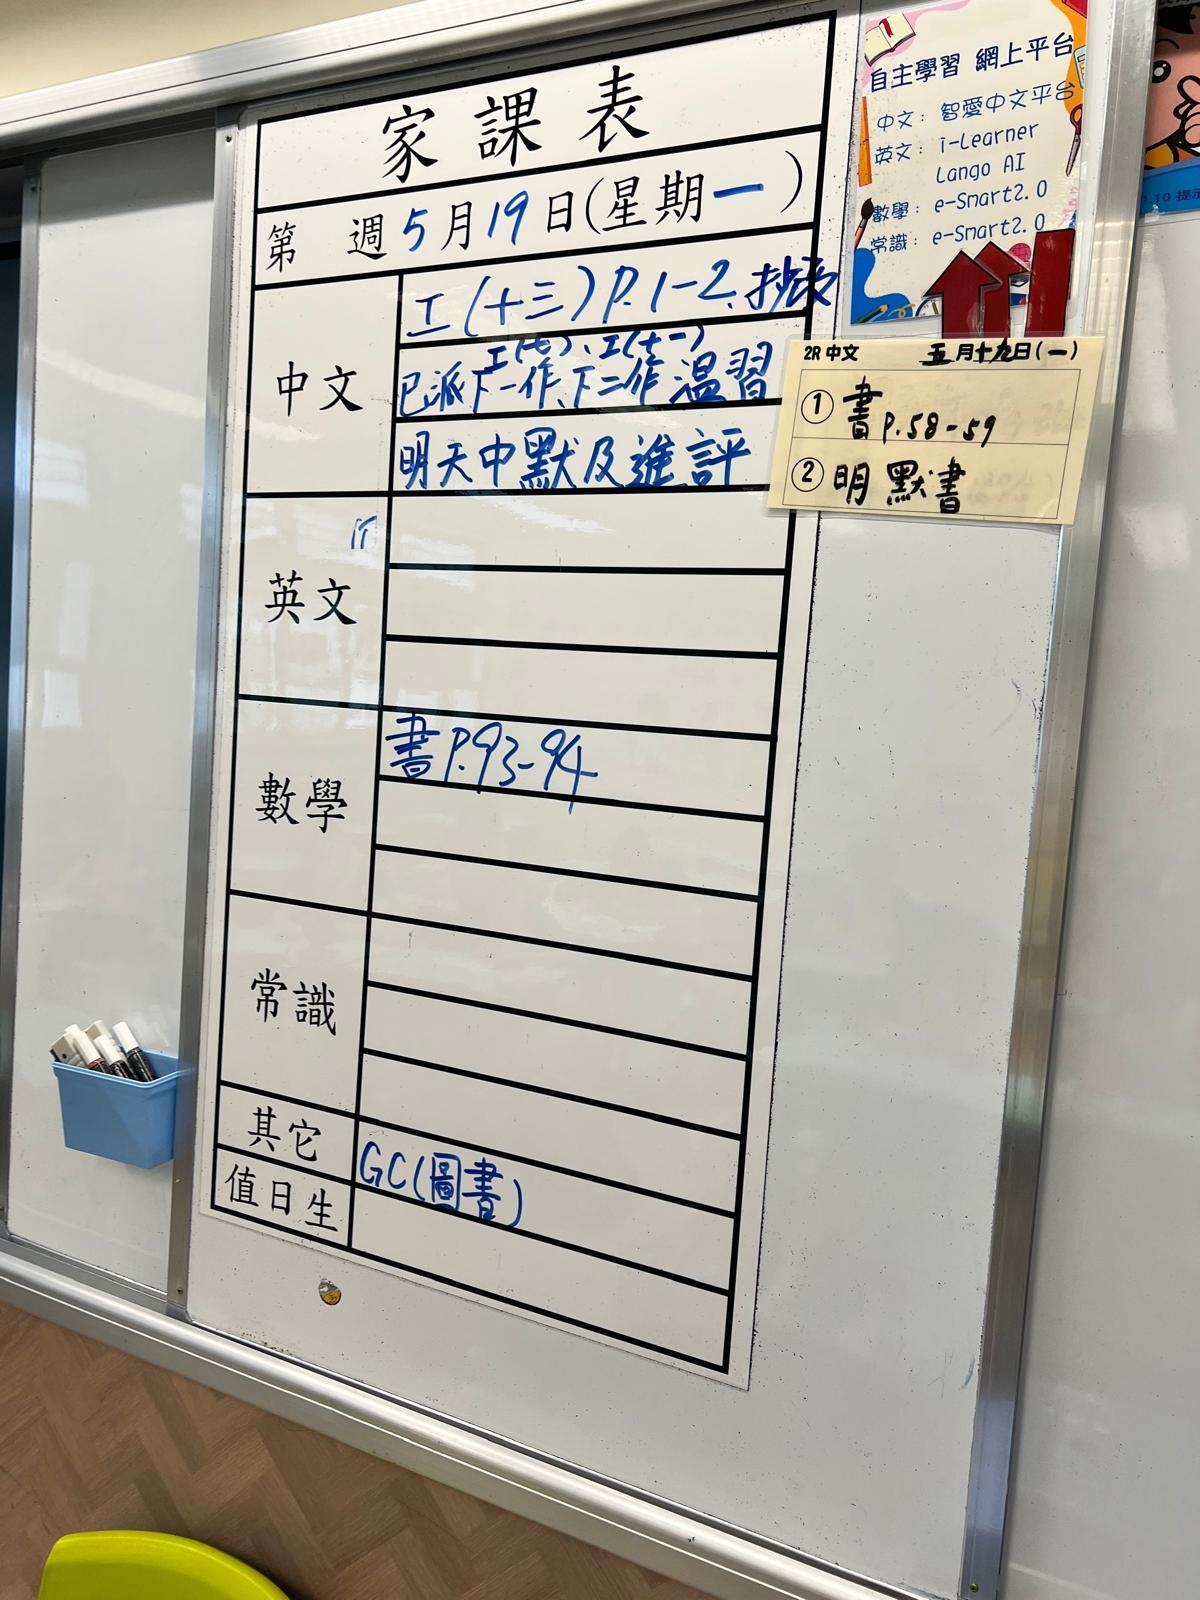 家課表
第 週5月19日(星期一)
中文
工(十三)P.1-2、抄
工(七)、工(十一)
已派下一作、下二作 溫習
明天中默及進評
英文
數學
書P.93-94
常識
其它
GC(圖書)
值日生
自主學習 網上平台
中文：智愛中文平台
英文：i-Learner
Lango AI
數學：e-Smart2.0
常識：e-Smart2.0
2R 中文 五月十九日(一)
① 書 P.58-59
② 明 默書